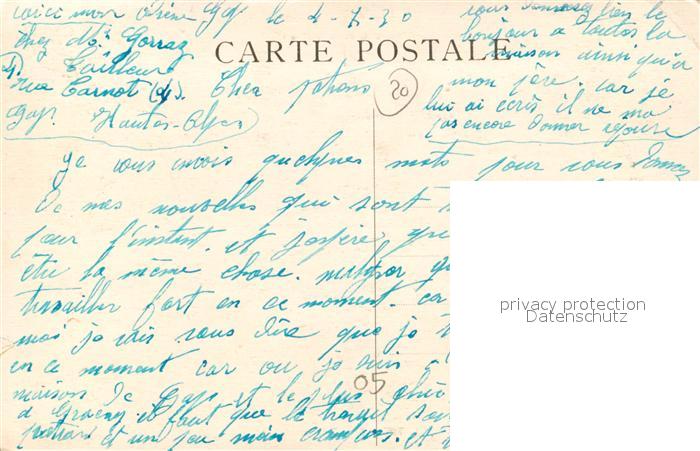 voici mon Gap le 4-7-30
chez Mr Gorraz
Tailleur
rue Carnot (4). Cher patron
Gap. Hautes-Alpes
CARTE POSTALE
20
vous donnerez bien le
bonjour a toutes la
maison ainsi qu'a
mon père. car je
lui ai écris il ne ma
pas encore donner réponse
Je vous envois quelques mots pour vous donner
De mes nouvelles qui sont
pour l'instant. et j'espère que
être la même chose. malgrer
travailler fort en ce moment. car
moi je vais vous dire que je
en ce moment car ou je suis
maison de Gap et le plus chic
05
et faut que le travail soit
et un peu moin
privacy protection
Datenschutz